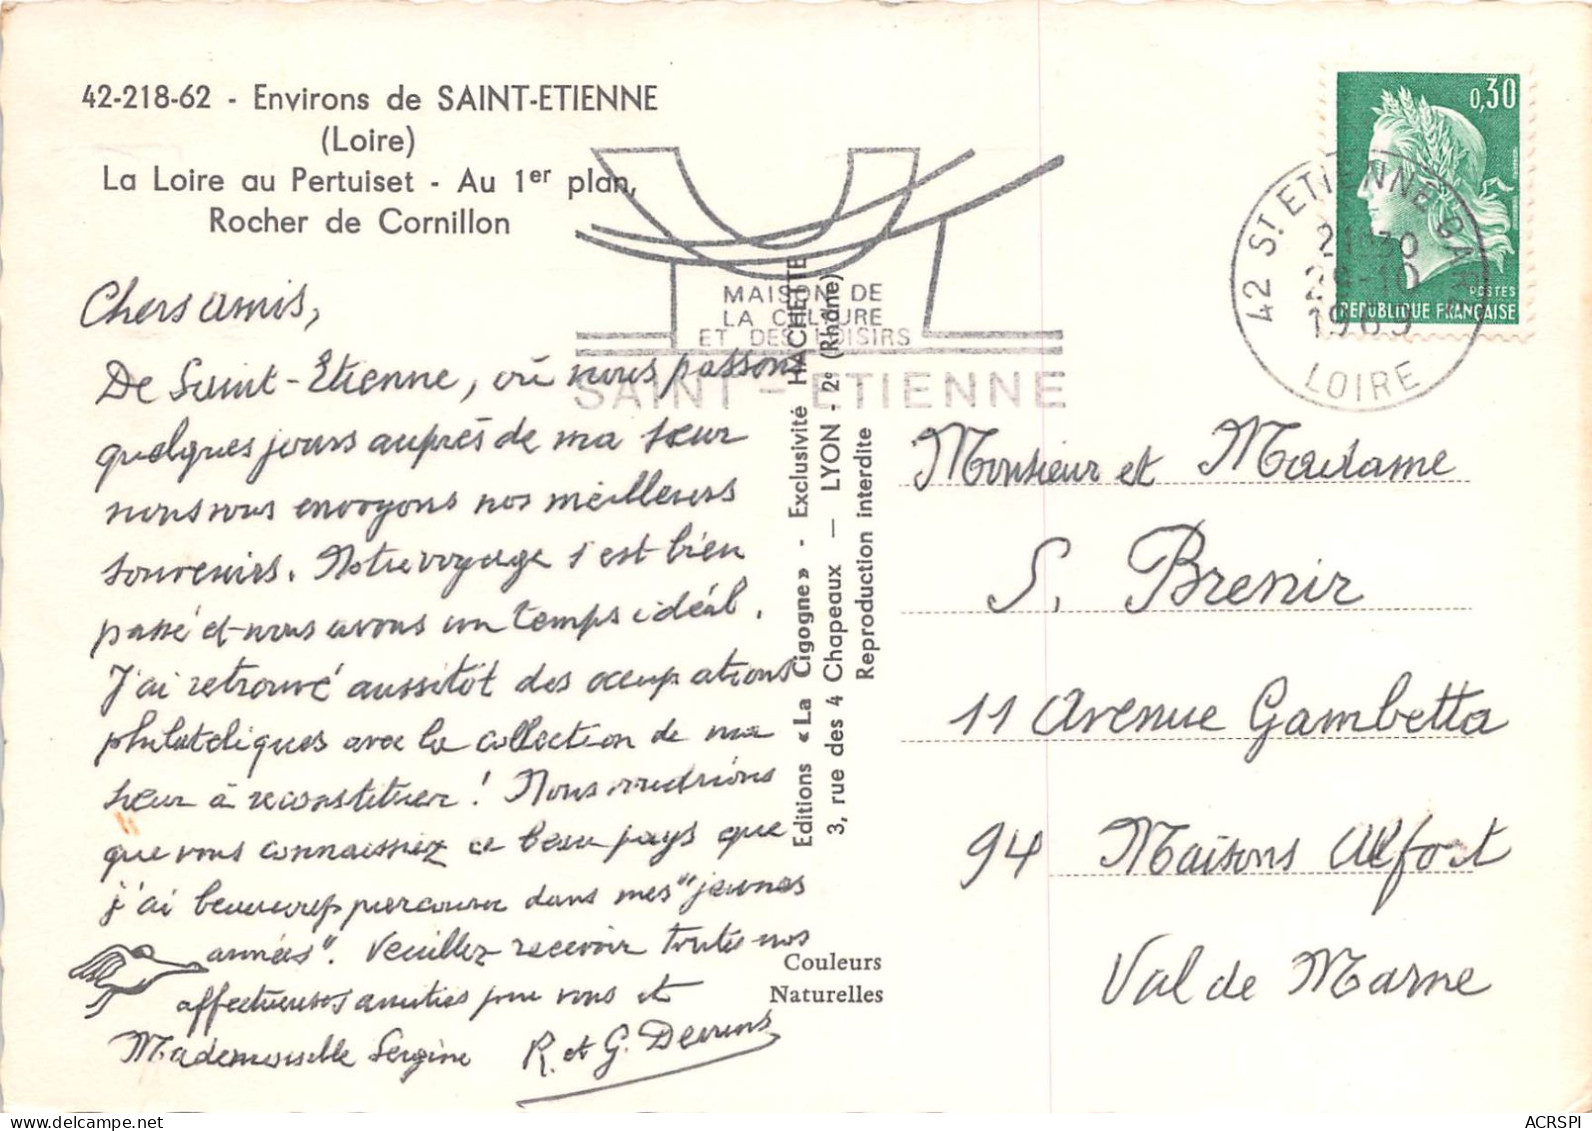 42-218-62 - Environs de SAINT-ETIENNE
(Loire)
La Loire au Pertuiset - Au 1er plan,
Rocher de Cornillon
Chers amis,
De Saint-Etienne, où nous passons
quelques jours auprès de ma sœur
nous vous envoyons nos meilleurs
souvenirs. Notre voyage s'est bien
passé et nous avons un temps idéal.
J'ai retrouvé aussitôt des occupations
philatéliques avec la collection de ma
sœur à reconstituer ! Nous voudrions
que vous connaissiez ce beau pays que
j'ai beaucoup parcouru dans mes "jeunes
années". Veuillez recevoir toutes nos
affectueuses amitiés pour vous et
Mademoiselle Sergine R. et G.
Couleurs
Naturelles
Editions «La Cigogne» - Exclusivité HACHETTE
3, rue des 4 Chapeaux — LYON - 2e (Rhône)
Reproduction interdite
MAISON DE
LA CULTURE
ET DES LOISIRS
SAINT-ETIENNE
0,30
POSTES
REPUBLIQUE FRANÇAISE
42 ST ETIENNE GARE
28-10
1969
LOIRE
Monsieur et Madame
S. Brenir
11 Avenue Gambetta
94 Maisons Alfort
Val de Marne
ACRSPI